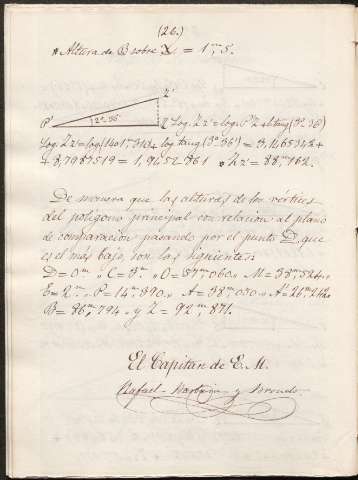 (26.)
" Altura de B sobre X = 1ᵐ,5.
Z'
P' 2º 36' Z Log. Zz' = log. P'Z + log tang (3º 36')
Log. Zz' = log (1401ᵐ,313) + log tang (3º.36') = 3,1465342 +
+ 8,7987519 = 1,9452861 " Zz' = 88ᵐ,162.
De manera que las alturas de los vértices
del polígono principal con relacion al plano
de comparacion pasando por el punto D, que
es el más bajo, son las siguientes:
D = 0ᵐ " C = 3ᵐ " O = 37ᵐ,060 " M = 38ᵐ,524 "
E = 2ᵐ " P = 14ᵐ,890 " A = 38ᵐ,070 " A' = 26ᵐ,242 "
B = 86ᵐ,794 " y Z = 92ᵐ,871.
El Capitan de E. M.
Rafael y